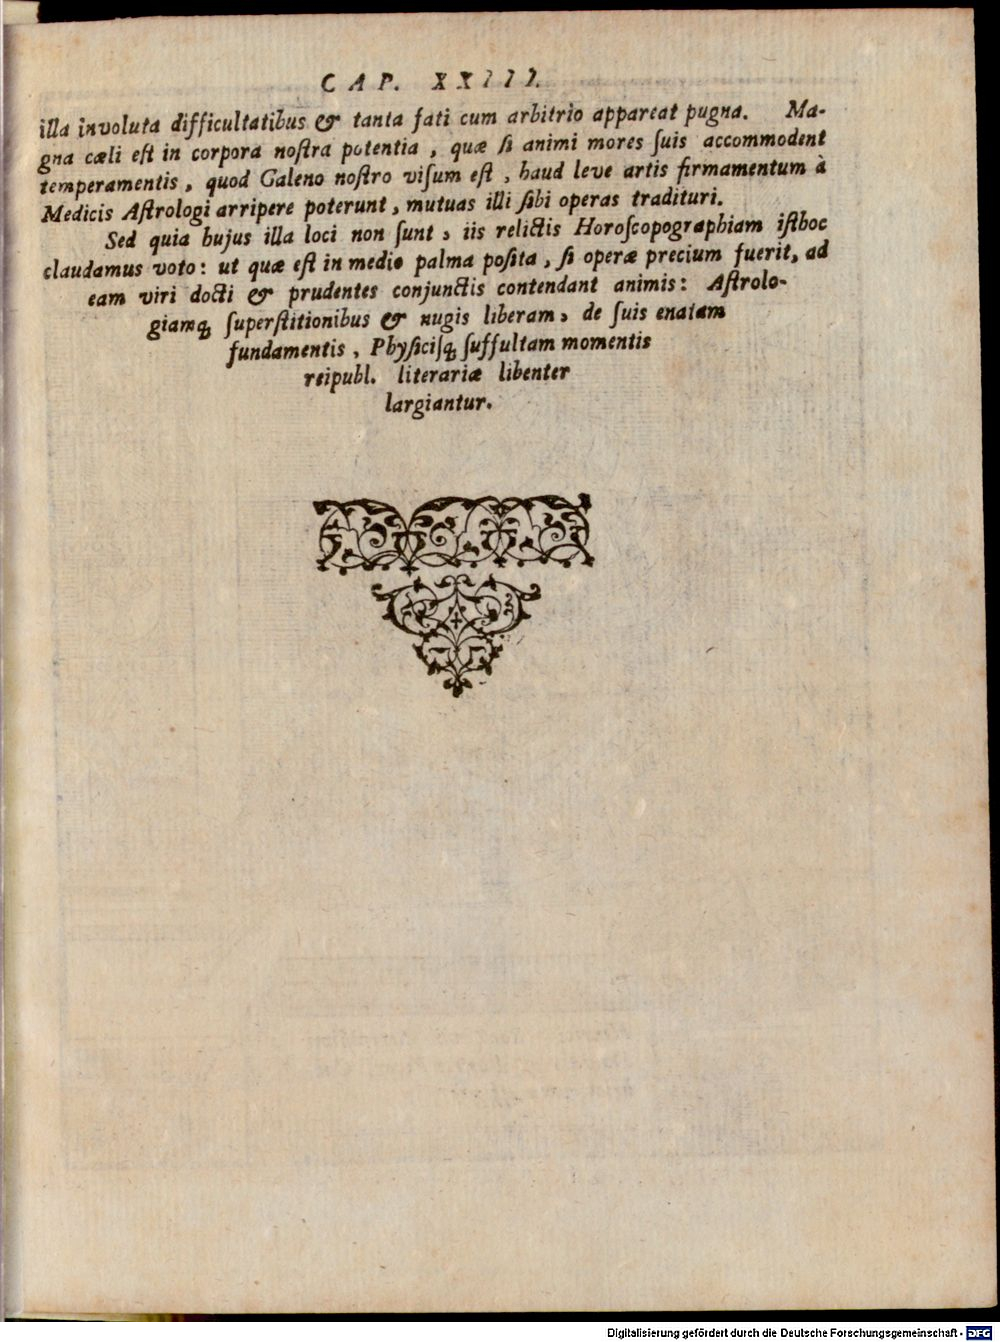 CAP. XXIII.
illa involuta difficultatibus & tanta fati cum arbitrio appareat pugna. Ma-
gna cæli est in corpora nostra potentia, quæ si animi mores suis accommodent
temperamentis, quod Galeno nostro visum est, haud leve artis firmamentum à
Medicis Astrologi arripere poterunt, mutuas illi sibi operas tradituri.
Sed quia hujus illa loci non sunt, iis relictis Horoscopographiam isthoc
claudamus voto: ut quæ est in medio palma posita, si operæ precium fuerit, ad
eam viri docti & prudentes conjunctis contendant animis: Astrolo-
giamq́; superstitionibus & nugis liberam, de suis enatam
fundamentis, Physicisq́; suffultam momentis
reipubl. literariæ libenter
largiantur.
Digitalisierung gefördert durch die Deutsche Forschungsgemeinschaft - DFG